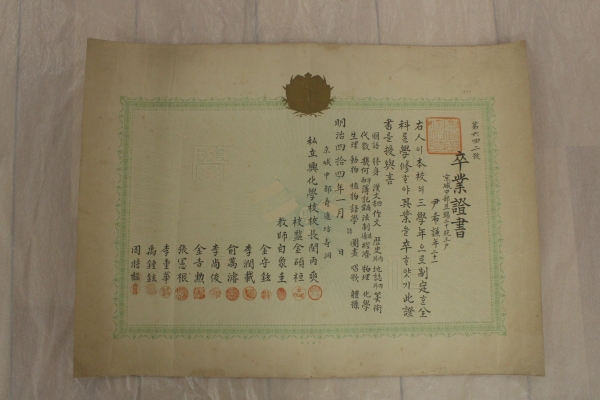 第六四二號
卒業證書
尹希謙 年二十一
右人이本校의三學年으로制定한全
科를學修하야其業을卒하얏기此證
書를授與함
國語 修身 漢文 作文 歷史 地誌 算術
代數 幾何 簿記 法制 經濟 物理 化學
生理 動物 植物 語學 圖畫 唱歌 體操
明治四拾四年一月 日
京城中部壽進坊壽洞
私立興化學校校長閔丙奭
校監金碩桓
教師白象圭
金守鉉
李潤載
俞萬濬
李尚俊
金吉勲
張憲根
李重華
禹鍾鉉
周時經